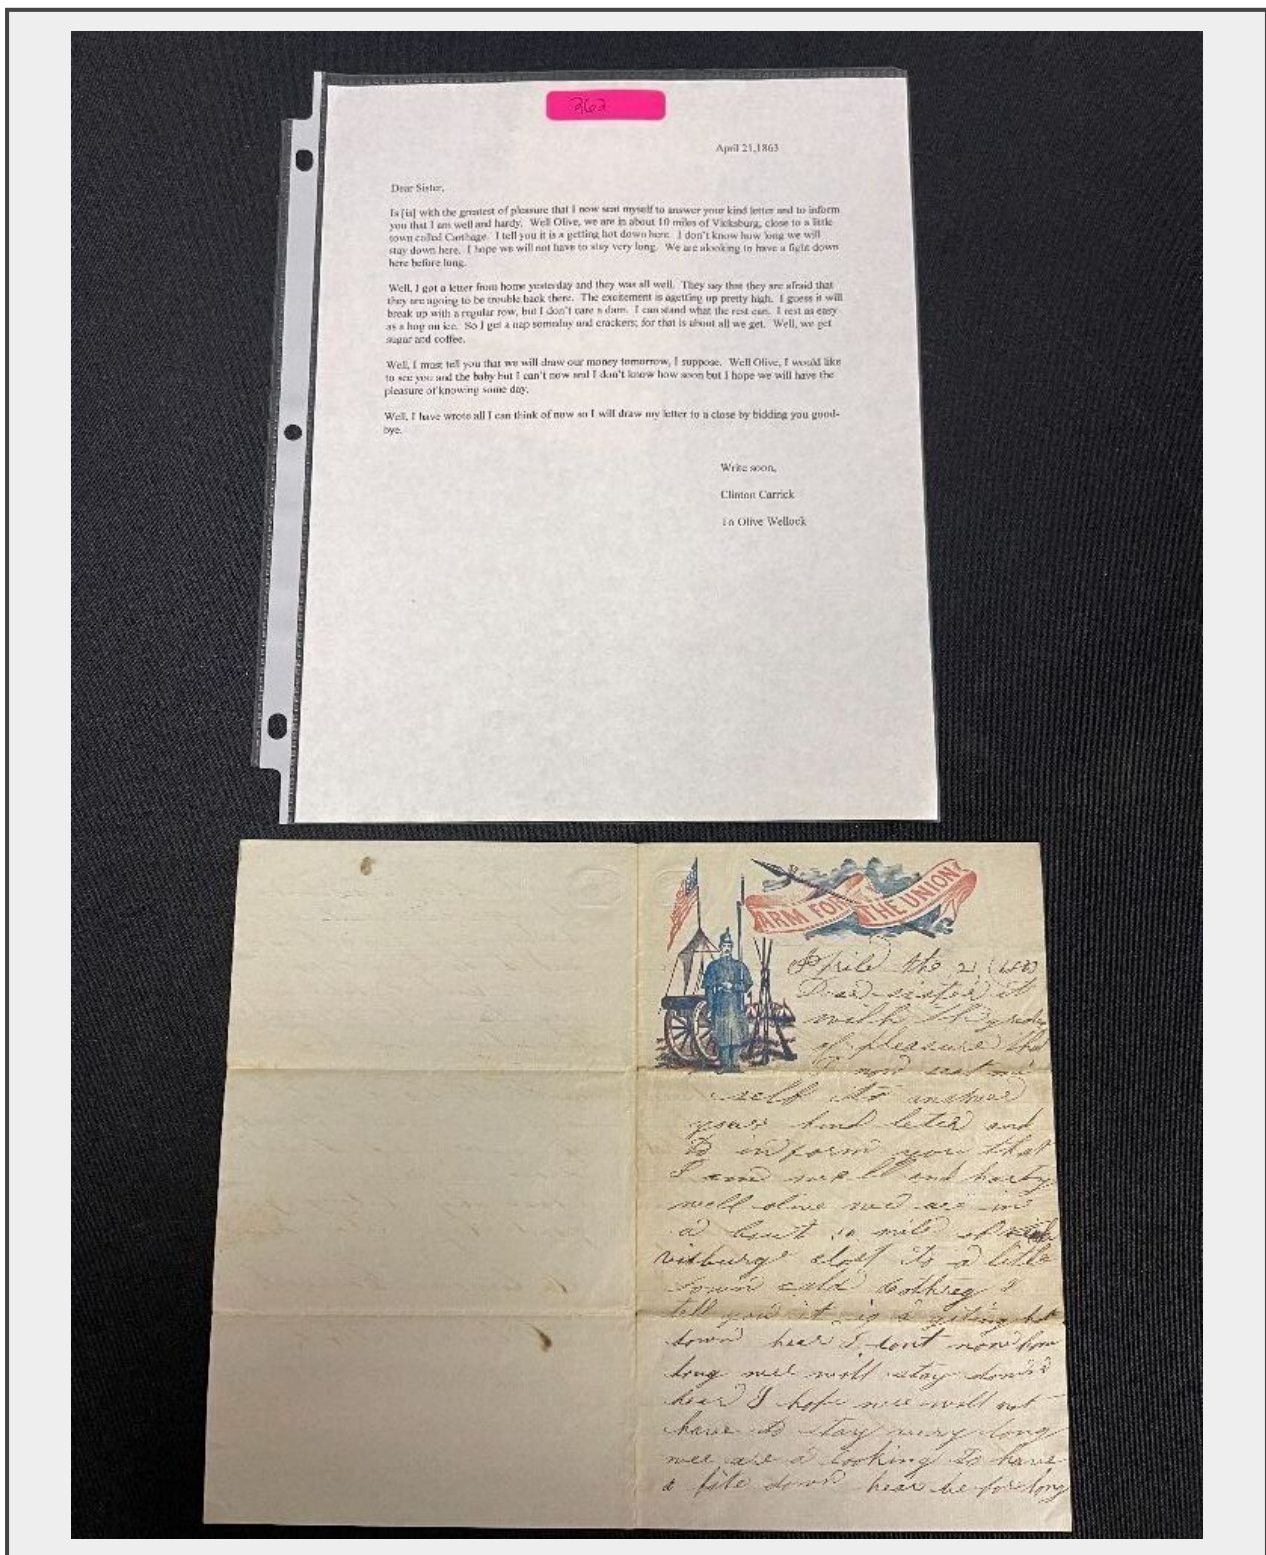 362
April 21,1863
Dear Sister,
Is [is] with the greatest of pleasure that I now seat myself to answer your kind letter and to inform
you that I am well and hardy. Well Olive, we are in about 10 miles of Vicksburg, close to a little
town called Carthage. I tell you it is a getting hot down here. I don't know how long we will
stay down here. I hope we will not have to stay very long. We are alooking to have a fight down
here before long.
Well, I got a letter from home yesterday and they was all well. They say that they are afraid that
they are agoing to be trouble back there. The excitement is agetting up pretty high. I guess it will
break up with a regular row, but I don't care a dam. I can stand what the rest can. I rest as easy
as a hog on ice. So I get a nap someday and crackers; for that is about all we get. Well, we get
sugar and coffee.
Well, I must tell you that we will draw our money tomorrow, I suppose. Well Olive, I would like
to see you and the baby but I can't now and I don't know how soon but I hope we will have the
pleasure of knowing some day.
Well, I have wrote all I can think of now so I will draw my letter to a close by bidding you good-
bye.
Write soon,
Clinton Carrick
To Olive Wellock
ARM FOR THE UNION
Aprile the 21
Dear sister it
with the
of pleasure that
I now seat mi
self to answer
your kind leter and
to inform you that
I am well and harty
well olive wee are in
a bout 10 mile of
vicburg clost to a little
town cald I
tell you it is a giting hot
down hear I dont now how
long wee will stay down
hear I hope wee will not
have to stay very long
wee are a looking to have
a fite down hear be fore long